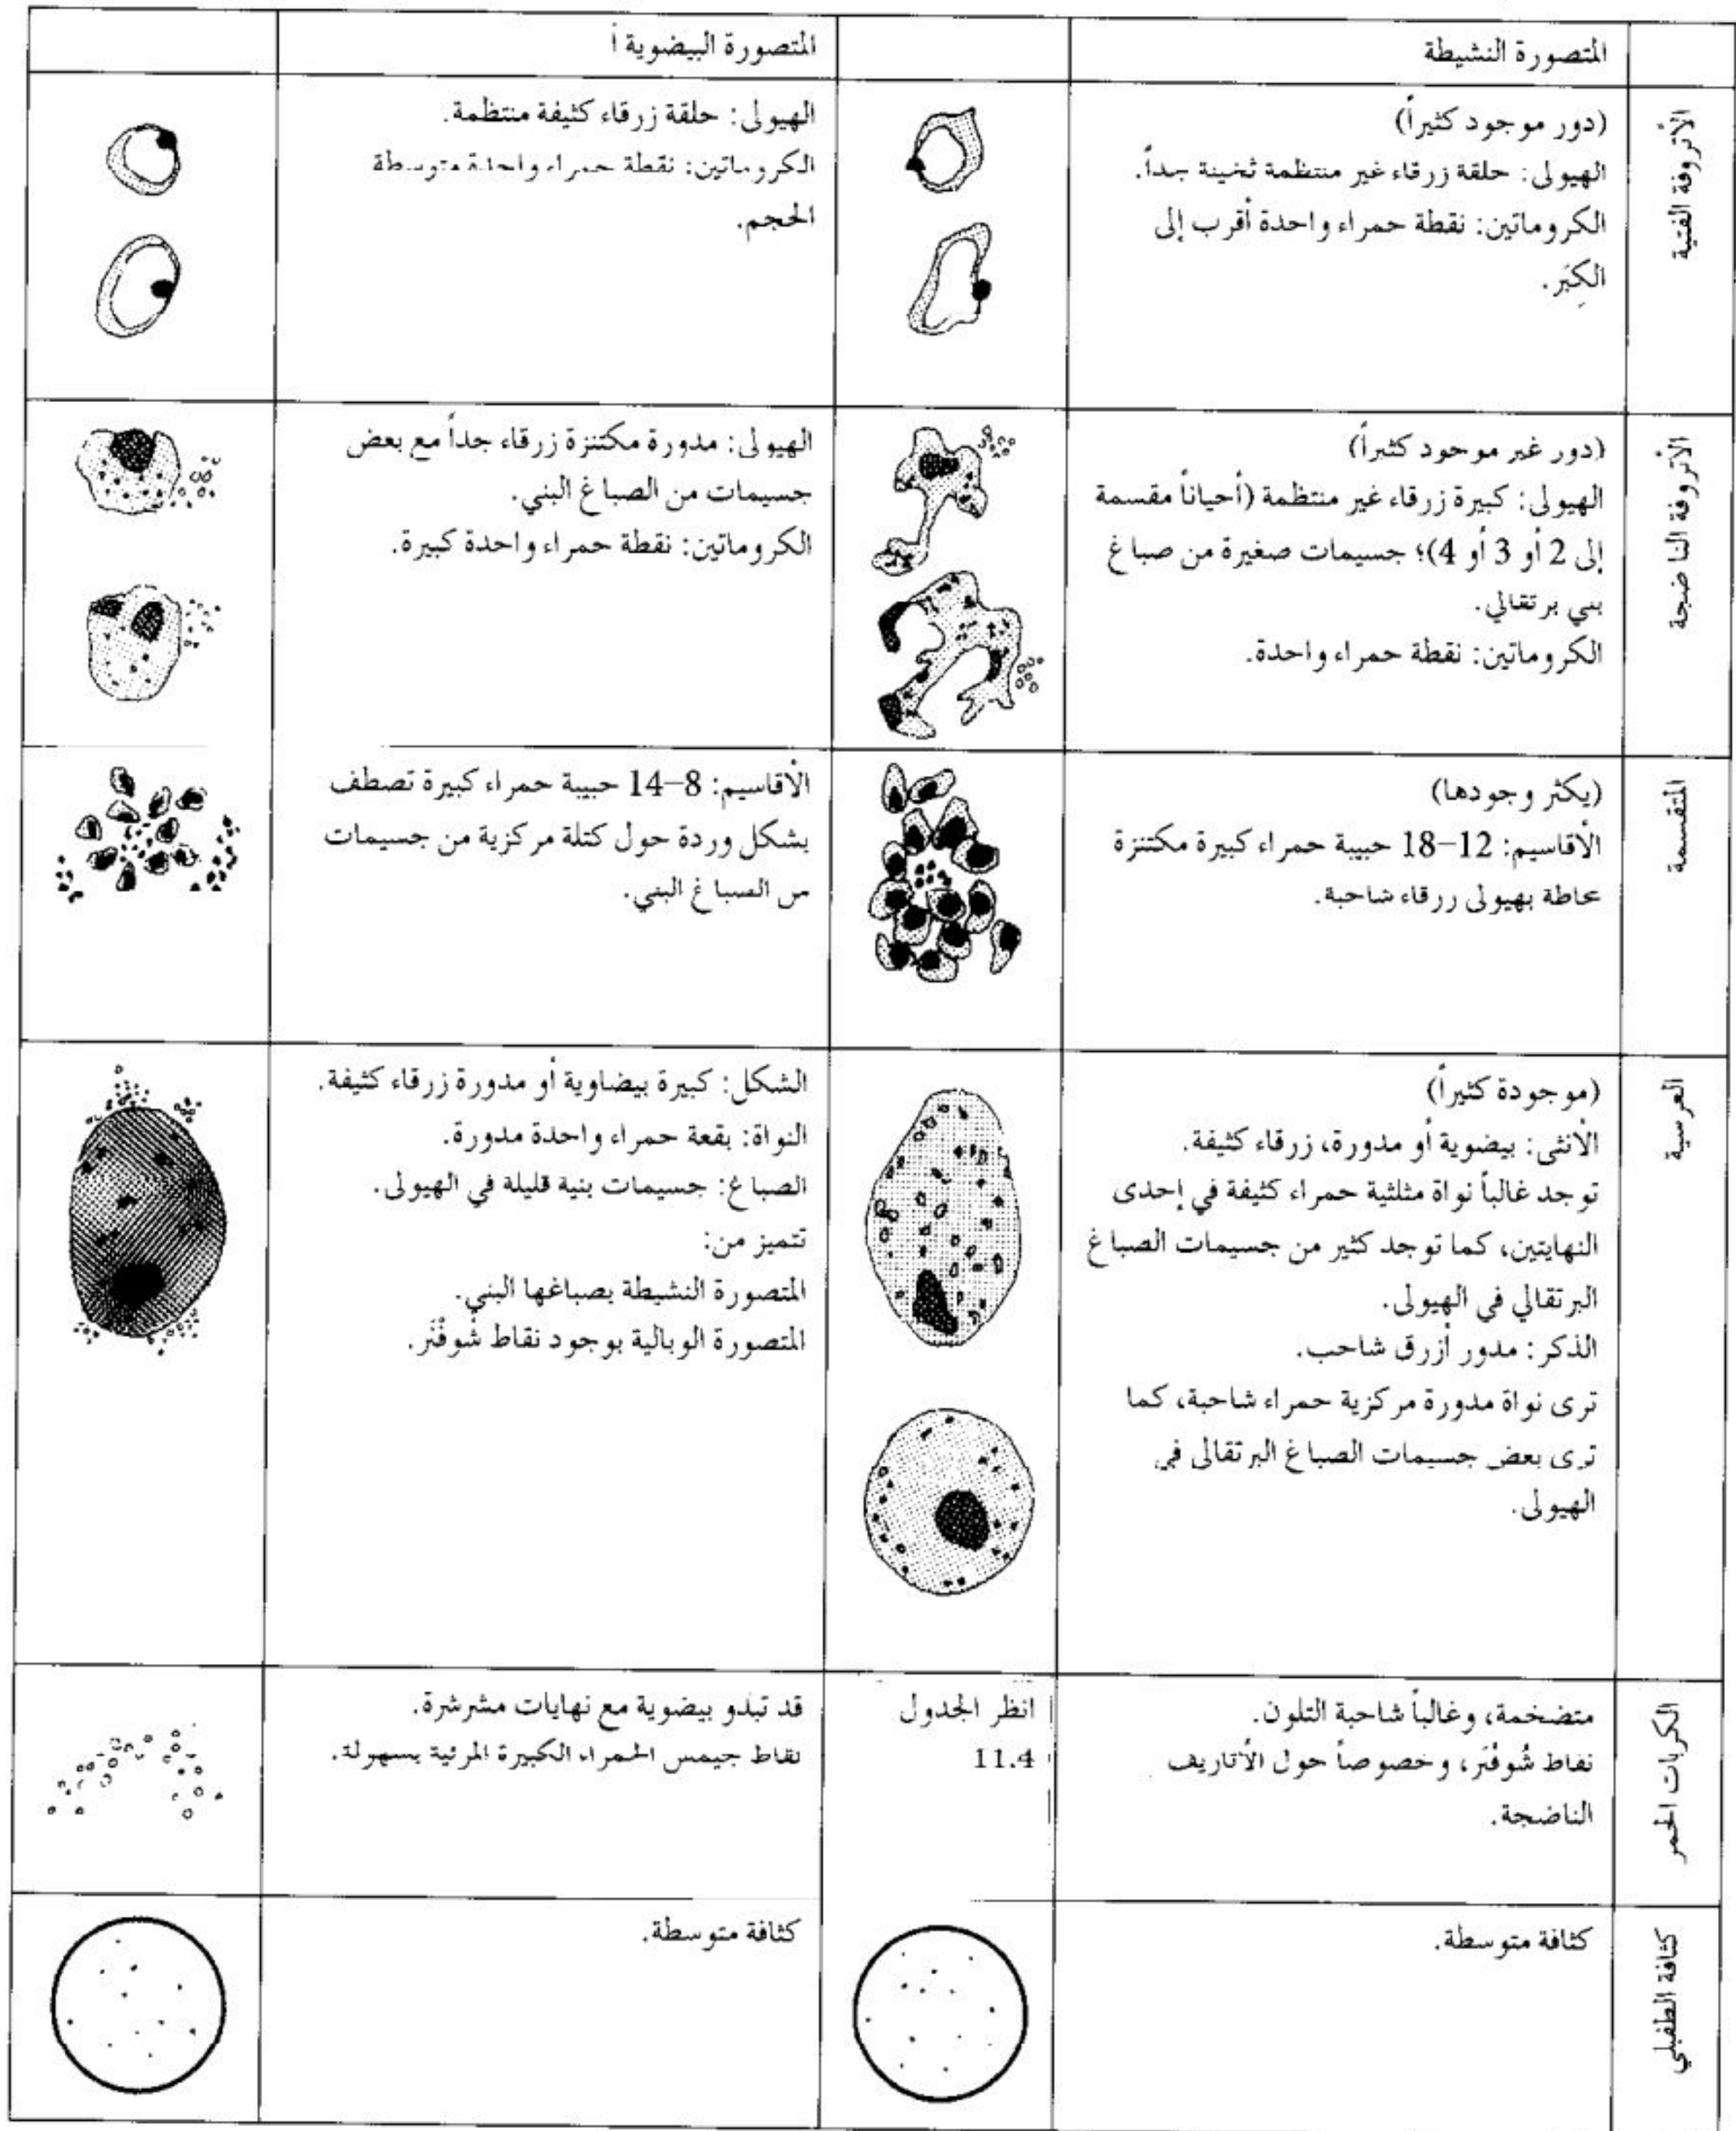 المتصورة النشيطة
المتصورة البيضوية أ
الأتروفة الفتية
(دور موجود كثيراً)
الهيولى: حلقة زرقاء غير منتظمة ثخينة جداً.
الكروماتين: نقطة حمراء واحدة أقرب إلى
الكِبَر.
الهيولى: حلقة زرقاء كثيفة منتظمة.
الكروماتين: نقطة حمراء واحدة متوسطة
الحجم.
الأتروفة الناضجة
(دور غير موجود كثيراً)
الهيولى: كبيرة زرقاء غير منتظمة (أحياناً مقسمة
إلى 2 أو 3 أو 4)؛ جسيمات صغيرة من صباغ
بني برتقالي.
الكروماتين: نقطة حمراء واحدة.
الهيولى: مدورة مكتنزة زرقاء جداً مع بعض
جسيمات من الصباغ البني.
الكروماتين: نقطة حمراء واحدة كبيرة.
المتقسمة
(يكثر وجودها)
الأقاسيم: 12–18 حبيبة حمراء كبيرة مكتنزة
محاطة بهيولى زرقاء شاحبة.
الأقاسيم: 8–14 حبيبة حمراء كبيرة تصطف
بشكل وردة حول كتلة مركزية من جسيمات
من الصباغ البني.
العرسية
(موجودة كثيراً)
الأنثى: بيضوية أو مدورة، زرقاء كثيفة.
توجد غالباً نواة مثلثية حمراء كثيفة في إحدى
النهايتين، كما توجد كثير من جسيمات الصباغ
البرتقالي في الهيولى.
الذكر: مدور أزرق شاحب.
ترى نواة مدورة مركزية حمراء شاحبة، كما
ترى بعض جسيمات الصباغ البرتقالي في
الهيولى.
الشكل: كبيرة بيضاوية أو مدورة زرقاء كثيفة.
النواة: بقعة حمراء واحدة مدورة.
الصباغ: جسيمات بنية قليلة في الهيولى.
تتميز من:
المتصورة النشيطة بصباغها البني.
المتصورة الوبالية بوجود نقاط شُوفْنَر.
الكريات الحمر
متضخمة، وغالباً شاحبة التلون.
نقاط شُوفْنَر، وخصوصاً حول الأتاريف
الناضجة.
انظر الجدول
11.4
قد تبدو بيضوية مع نهايات مشرشرة.
نقاط جيمس الحمراء الكبيرة المرئية بسهولة.
كثافة الطفيلي
كثافة متوسطة.
كثافة متوسطة.